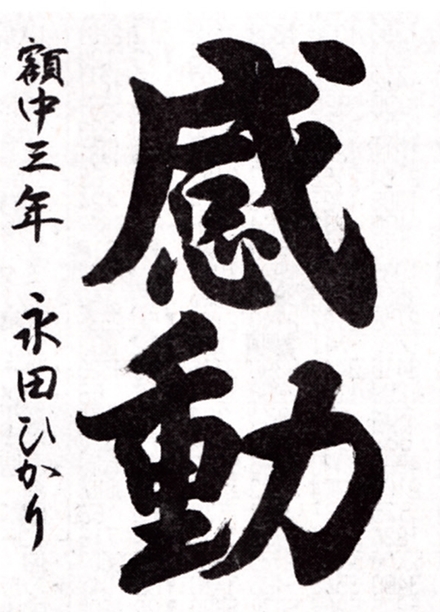 感動
額中三年 永田ひかり